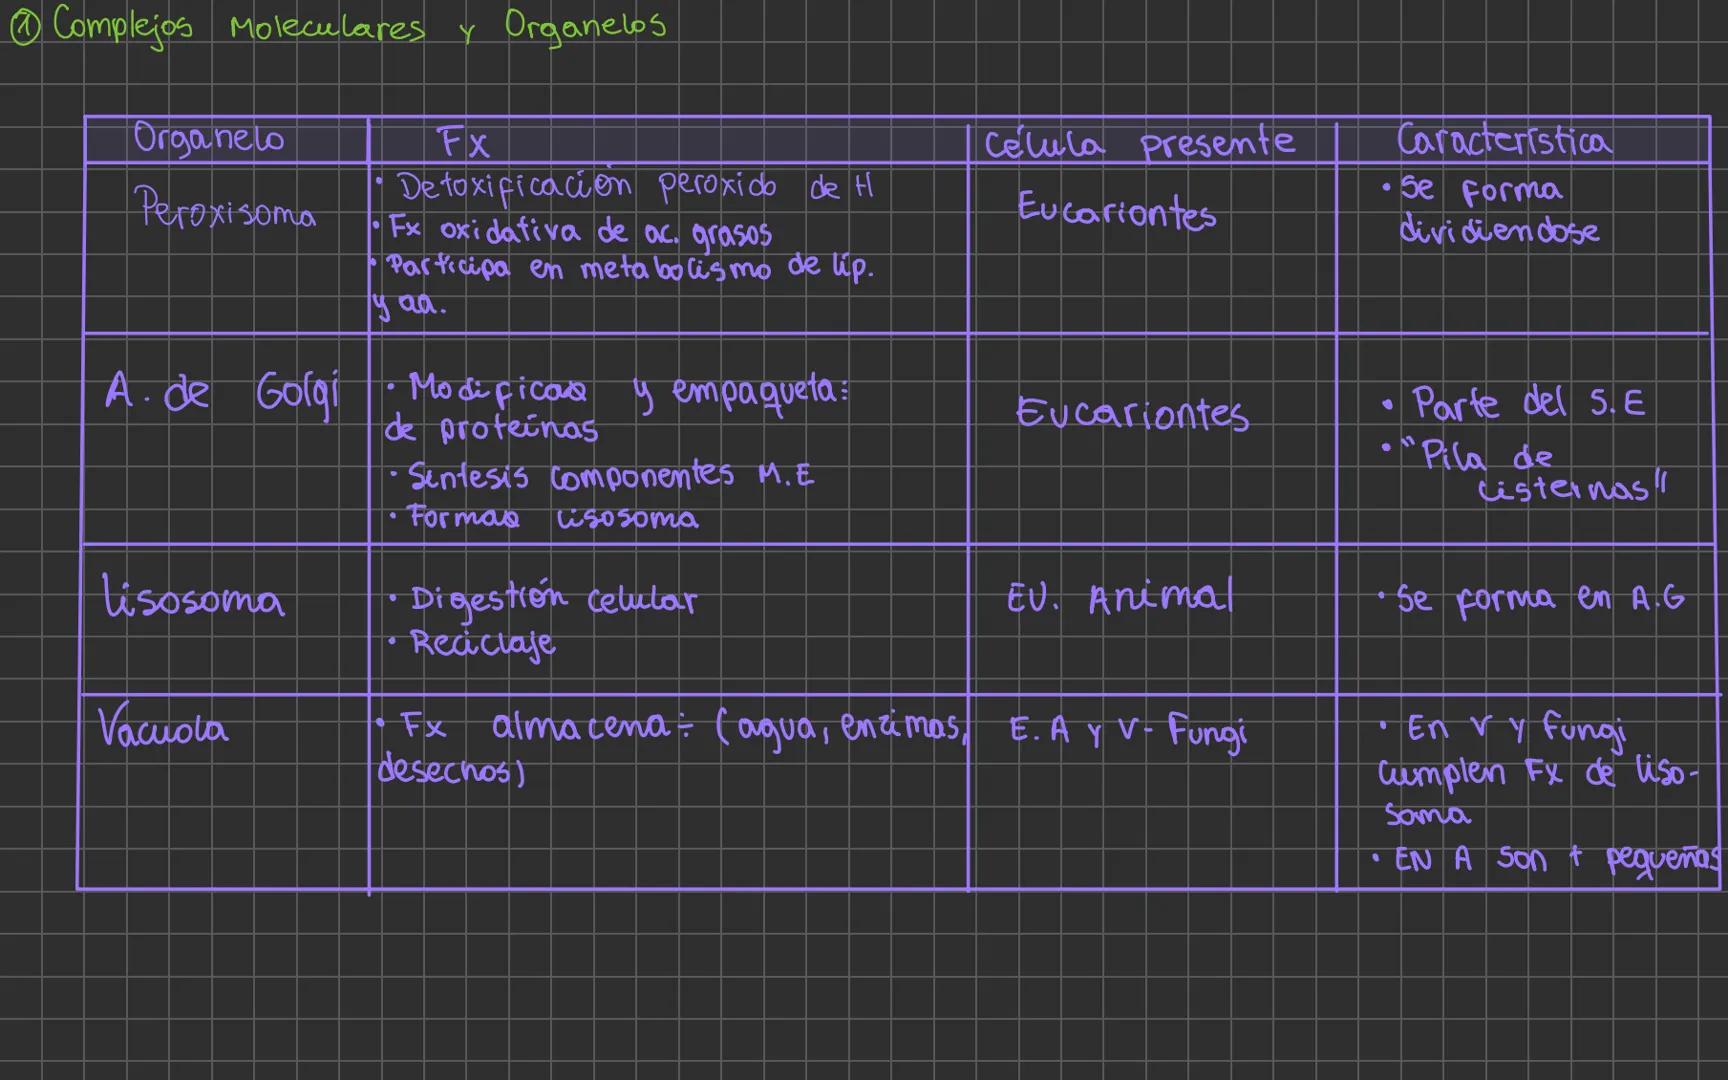 ① Complejos Moleculares y Organelos
Organelo
Fx
Célula presente
Característica
Peroxisoma
• Detoxificación peroxido de H
• Fx oxidativa de ac. grasos
• Participa en metabolismo de lip.
y aa.
Eucariontes
• Se forma
dividiendose
A. de Golgi
• Modificaa y empaqueta:
de proteínas
• Síntesis componentes M.E
• Formaa lisosoma
Eucariontes
• Parte del S.E
• "Pila de
cisternas"
Lisosoma
• Digestión celular
• Reciclaje
EU. Animal
• Se forma en A.G
Vacuola
• Fx almacena÷ (agua, enzimas,
desechos)
E. A y V - Fungi
• En V y Fungi
cumplen Fx de liso-
soma
• EN A son + pequeñas